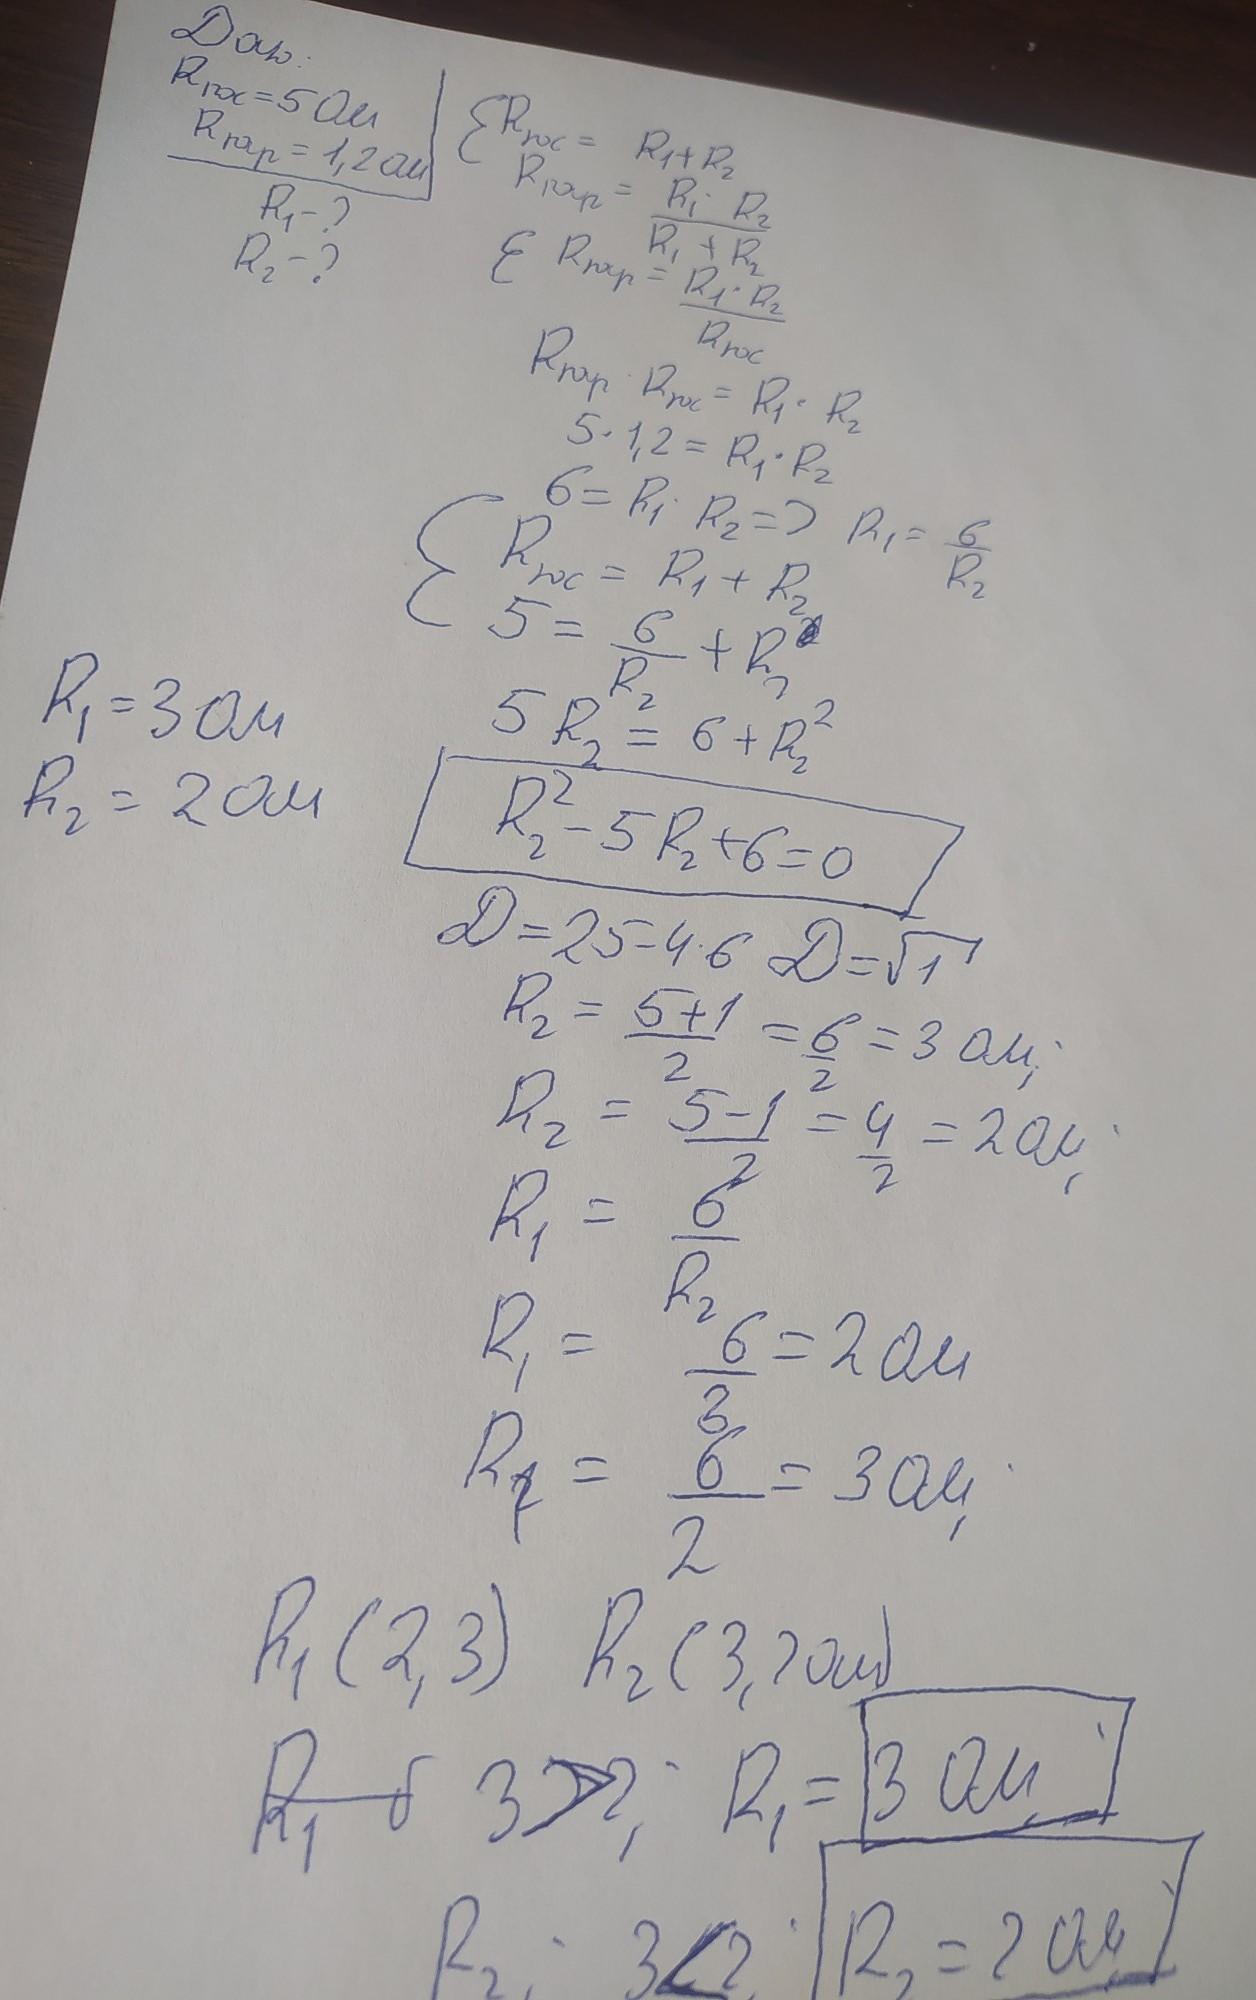 Дано:
Rпос = 5 Ом
Rпар = 1,2 Ом
R₁ - ?
R₂ - ?
{ Rпос = R₁ + R₂
Rпар = R₁ · R₂ / R₁ + R₂
{ Rпар = R₁ · R₂ / Rпос
Rпар · Rпос = R₁ · R₂
5 · 1,2 = R₁ · R₂
6 = R₁ · R₂ => R₁ = 6/R₂
{ Rпос = R₁ + R₂
5 = 6/R₂ + R₂
5R₂ = 6 + R₂²
R₂² - 5R₂ + 6 = 0
R₁ = 3 Ом
R₂ = 2 Ом
D = 25 - 4·6 D = √1
R₂ = 5+1/2 = 6/2 = 3 Ом;
R₂ = 5-1/2 = 4/2 = 2 Ом;
R₁ = 6/R₂
R₁ = 6/3 = 2 Ом
R₁ = 6/2 = 3 Ом;
R₁ (2,3) R₂ (3,2 Ом)
R₁ 3 > 2; R₁ = 3 Ом;
R₂: 3 < 2; R₂ = 2 Ом;